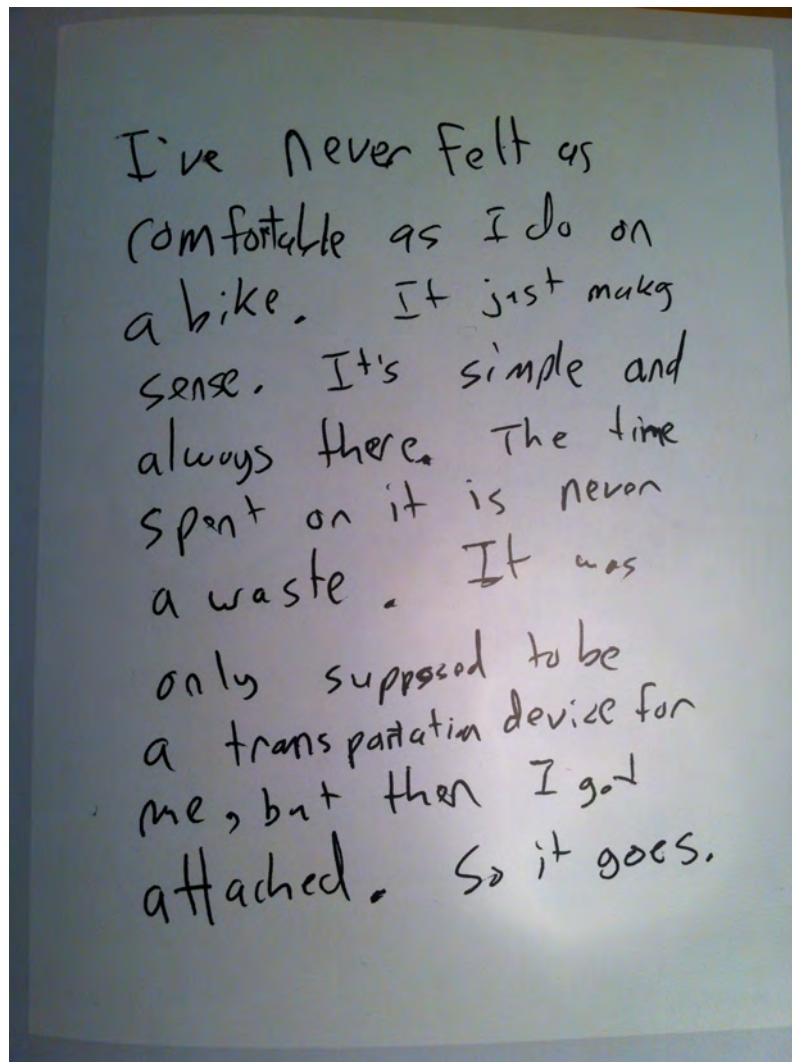 I've never felt as
comfortable as I do on
a bike. It just makes
sense. It's simple and
always there. The time
spent on it is never
a waste. It was
only supposed to be
a transportation device for
me, but then I got
attached. So it goes.